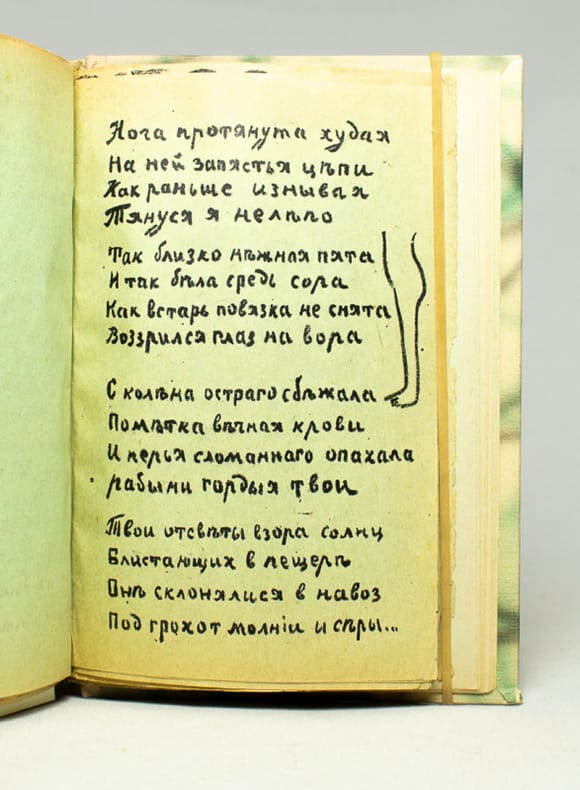 Нога протянута худая
На ней запястья цѣпи
Как раньше изнывая
Тянуся я нелѣпо
Так близко нѣжная пята
И так бѣла средь сора
Как встарь повязка не снята
Воззрился глаз на вора
С колѣна остраго сбѣжала
Помѣтка вѣчная крови
И перья сломаннаго опахала
рабыни гордыя твои
Твои отсвѣты взора солнц
Блистающих в пещерѣ
Онѣ склонялися в навоз
Под грохот молніи и сѣры...